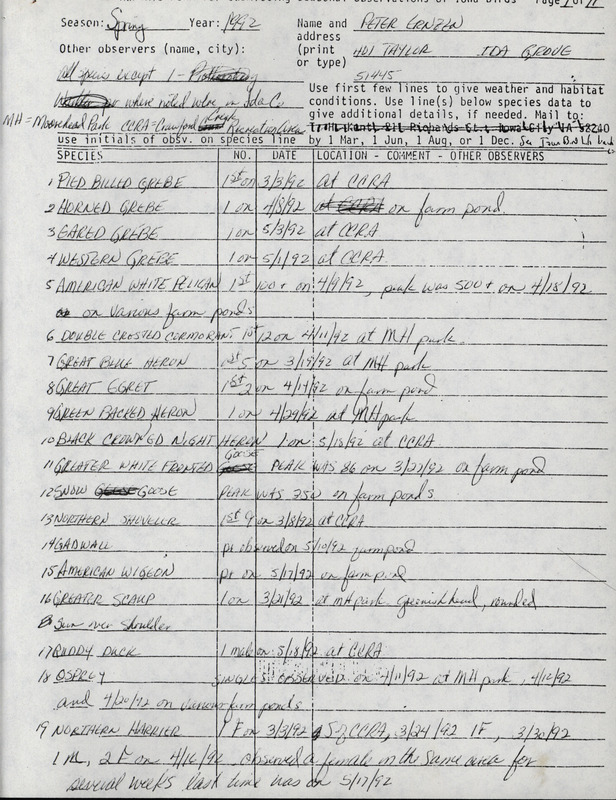 Season: Spring Year: 1992 Name and PETER ERNZEN
address
Other observers (name, city): (print 401 TAYLOR IDA GROVE
or type)
All species except 1 - Prothonotary 51445
Use first few lines to give weather and habitat
Warbler or where noted were in Ida Co. conditions. Use line(s) below species data to
give additional details, if needed. Mail to:
MH = Moorehead Park CCRA = Crawford Creek Recreation Area
use initials of obsv. on species line by 1 Mar, 1 Jun, 1 Aug, or 1 Dec.
SPECIES NO. DATE LOCATION - COMMENT - OTHER OBSERVERS
1 PIED BILLED GREBE 1st on 3/3/92 at CCRA
2 HORNED GREBE 1 on 4/8/92 at CCRA on farm pond
3 EARED GREBE 1 on 5/3/92 at CCRA
4 WESTERN GREBE 1 on 5/1/92 at CCRA
5 AMERICAN WHITE PELICAN 1st 100+ on 4/9/92, peak was 500+ on 4/18/92
on various farm ponds
6 DOUBLE CRESTED CORMORANT 1st 12 on 4/11/92 at MH park.
7 GREAT BLUE HERON 1st 5 on 3/19/92 at MH park
8 GREAT EGRET 1st 2 on 4/14/92 on farm pond
9 GREEN BACKED HERON 1 on 4/29/92 at MH park
10 BLACK CROWNED NIGHT HERON 1 on 5/18/92 at CCRA
11 GREATER WHITE FRONTED GOOSE PEAK WAS 86 on 3/27/92 on farm pond
12 SNOW GEESE GOOSE PEAK WAS 250 on farm ponds
13 NORTHERN SHOVELER 1st 9 on 3/8/92 at CCRA
14 GADWALL pr observed on 5/10/92 farm pond
15 AMERICAN WIGEON pr on 5/17/92 on farm pond
16 GREATER SCAUP 1 on 3/21/92 at MH park Greenish head, rounded
Sun over shoulder
17 RUDDY DUCK 1 male on 5/18/92 at CCRA
18 OSPREY SINGLES OBSERVED on 4/11/92 at MH park, 4/16/92
and 4/20/92 on various farm ponds
19 NORTHERN HARRIER 1 F on 3/3/92 S of CCRA, 3/24/92 1F, 3/30/92
1 M, 2 F on 4/16/92 observed a female in the same area for
several weeks last time was on 5/17/92